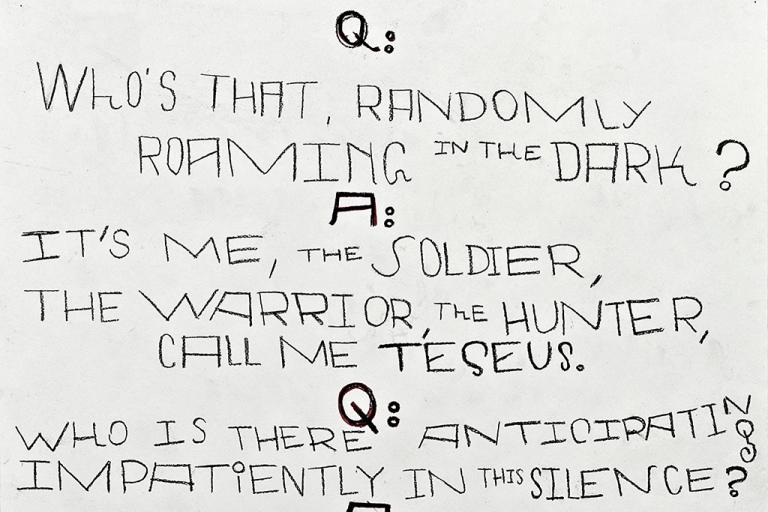 Q:
WHO'S THAT, RANDOMLY
ROAMING IN THE DARK?
A:
IT'S ME, THE SOLDIER,
THE WARRIOR, THE HUNTER,
CALL ME TESEUS.
Q:
WHO IS THERE ANTICIPATING
IMPATIENTLY IN THIS SILENCE?